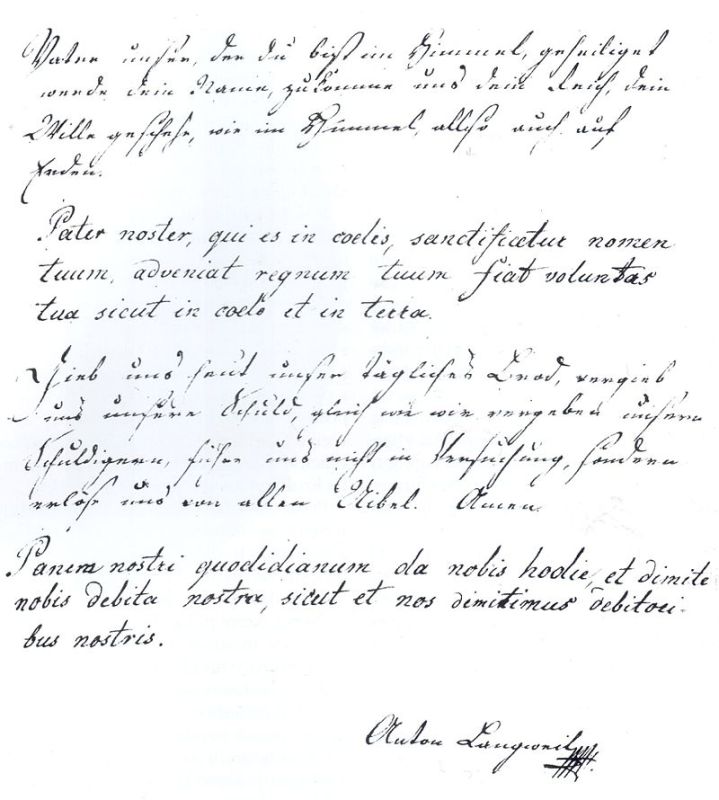 Vater unser, der du bist im Himmel, geheiliget
werde dein Name, zukomme uns dein Reich, dein
Wille geschehe, wie im Himmel, allso auch auf
Erden.
Pater noster, qui es in coelis, sanctificetur nomen
tuum, adveniat regnum tuum fiat voluntas
tua sicut in coelo et in terra.
Gieb uns heut unser tägliches Brod, vergieb
uns unsere Schuld, gleich wie wir vergeben unsern
Schuldigern, führe uns nicht in Versuchung, sondern
erlöse uns von allen Uibel. Amen.
Panem nostri quodidianum da nobis hodie, et dimite
nobis debita nostra, sicut et nos dimitimus debitori-
bus nostris.
Anton Langweil